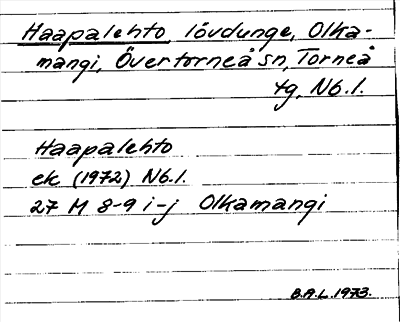 Haapalehto, lövdunge, Olka-
mangi, Övertorneå sn, Torneå
tg, Nb.l.
Haapalehto
ek (1972) Nb.l.
27 M 8-9 i-j Olkamangi
B.A.L. 1973.